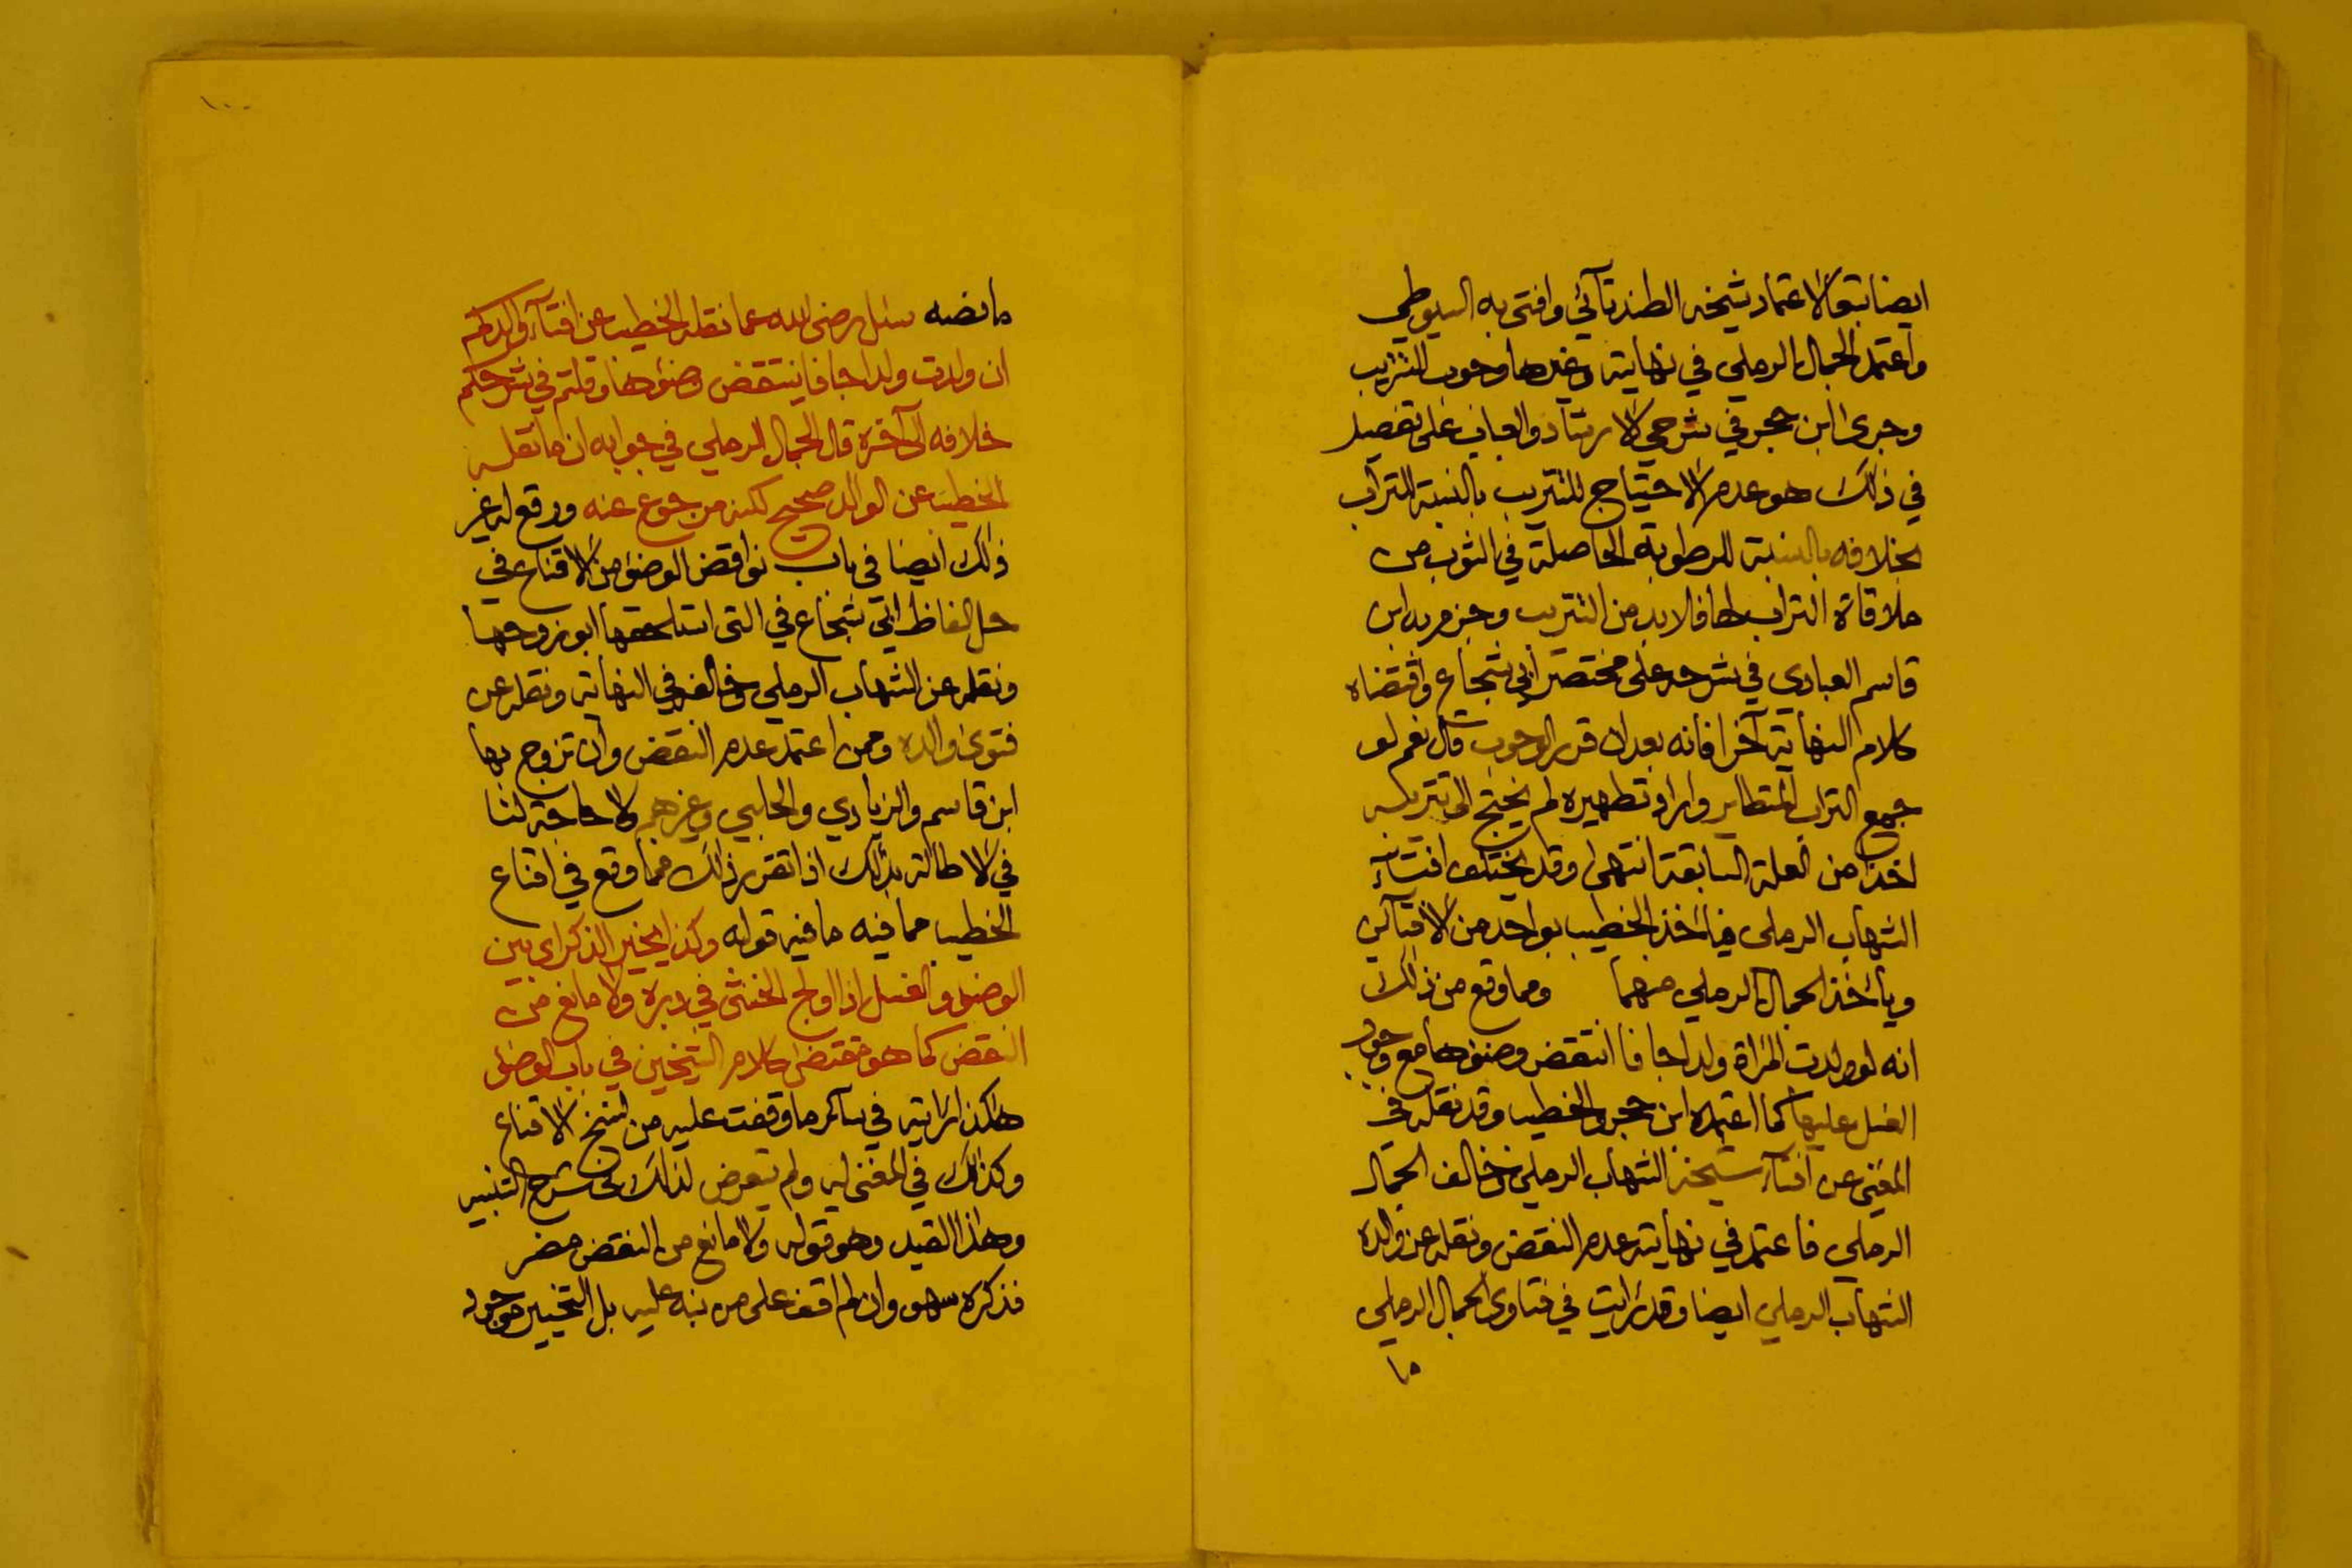 ايضا تبعا لاعتماد شيخه الطندتآئي وافتى به السيوطي
واعتمد الجمال الرملي في نهايته وغيرها وجوب التتريب
وجرى ابن حجر في شرحي الارشاد والعباب على تفصيل
في ذلك هو عدم الاحتياج للتتريب بالنسبة للتراب
بخلافه بالنسبة للرطوبة الحاصلة في الثوب من
ملاقاة التراب لها فلا بد من التتريب وجزم به ابن
قاسم العبادي في شرحه على مختصر ابي شجاع واقتضاه
كلام النهاية آخرا فانه بعد ان قرر الوجوب قال نعم لو
جمع التراب المتطاير واراد تطهيره لم يحتج الى تتريبه
اخذا من العلة السابقة انتهى وقد يختلف افتآء
الشهاب الرملي فيأخذ الخطيب بواحد من الافتآئين
ويأخذ الجمال الرملي منهما ومما وقع من ذلك
انه لو ولدت المرأة ولدا جافا انتقض وضوءها مع وجوب
الغسل عليها كما اعتمده ابن حجر والخطيب وقد نقله في
المغني عن افتآء شيخه الشهاب الرملي وخالف الجمال
الرملي فاعتمد في نهايته عدم النقض ونقله عن والده
الشهاب الرملي ايضا وقد رأيت في فتاوى الجمال الرملي
ما
١٠٠
ما نصه سئل رضى الله عما نقله الخطيب عن افتآء والدكم
ان ولدت ولدا جافا ينتقض وضوءها وقلتم في شرحكم
خلافه الى آخره قال الجمال الرملي في جوابه ان ما نقله
الخطيب عن الوالد صحيح لكنه مرجوع عنه ووقع له غير
ذلك ايضا في باب نواقض الوضوء من الاقناع في
حل الفاظ ابي شجاع في التى استلحقها ابو زوجها
ونقله عن الشهاب الرملي وخالفه في النهاية ونقله عن
فتوى والده وممن اعتمد عدم النقض وان تزوج بها
ابن قاسم والزيادي والحلبي وغيرهم لا حاجة لنا
في الاطالة بذلك اذا تقرر ذلك فمما وقع في اقناع
الخطيب مما فيه ما فيه قوله وكذا يخير الذكر اى بين
الوضوء والغسل اذا اولج الخنثى في دبره ولا مانع من
النقض كما هو مقتضى كلام الشيخين في باب الوضوء
هكذا رأيته في سآئر ما وقفت عليه من نسخ الاقناع
وكذلك في المغني له ولم يتعرض لذلك في شرح التنبيه
وهذا القيد وهو قوله ولا مانع من النقض مضر
فذكره سهو وان لم اقف على من نبه عليه بل التخيير موجود